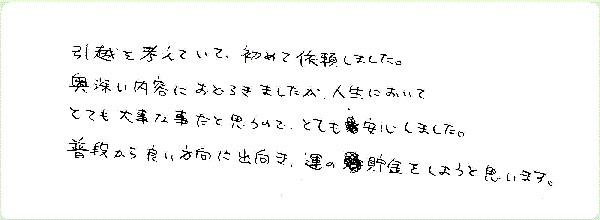 引越を考えていて、初めて依頼しました。
奥深い内容におどろきましたが、人生において
とても大事な事だと思うので、とても安心しました。
普段から良い方向に出向き、運の貯金をしようと思います。